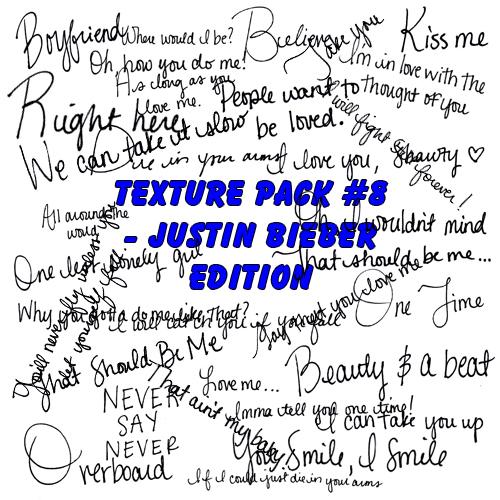 Boyfriend
Where would I be?
Believe
I love you
Kiss me
Oh, how you do me!
I'm in love with the
thought of you
As long as you
love me.
People want to
be loved.
I will fight
forever!
Right here
We can take it slow
Die in your arms
I love you,
Shawty ♡
TEXTURE PACK #8
- JUSTIN BIEBER
EDITION
All around the
world
I wouldn't mind
One less lonely girl
That should be me...
Why you gotta do me like that?
I will catch you if you fall
One Time
That Should Be Me
Love me...
Beauty & a beat
NEVER
SAY
NEVER
That ain't my baby
Imma tell you one time!
I can take you up
You Smile, I Smile
Overboard
If I could just die in your arms